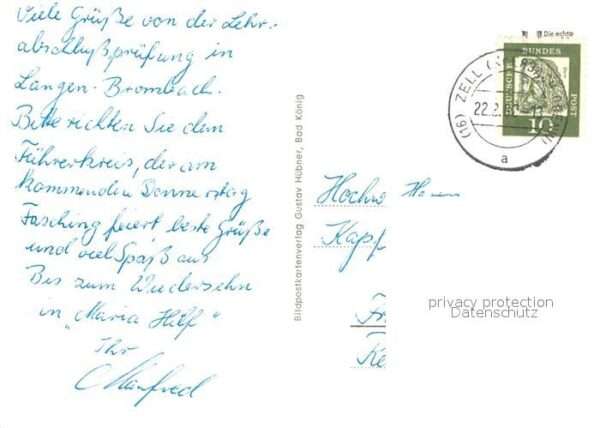 Viele Grüße von der Lehr-
abschlußprüfung in
Langen-Brombach.
Bitte richten Sie dem
Führerkreis, der am
kommenden Donnerstag
Fasching feiert beste Grüße
und viel Spaß aus
Bis zum Wiedersehn
in „Maria Hilf"
Ihr
Manfred
Bildpostkartenverlag Gustav Hübner, Bad König
Die echte
DEUTSCHE BUNDES POST
10
(16) ZELL
22.2.
a
Hochw Herrn
Kapl
Fr
privacy protection
Datenschutz